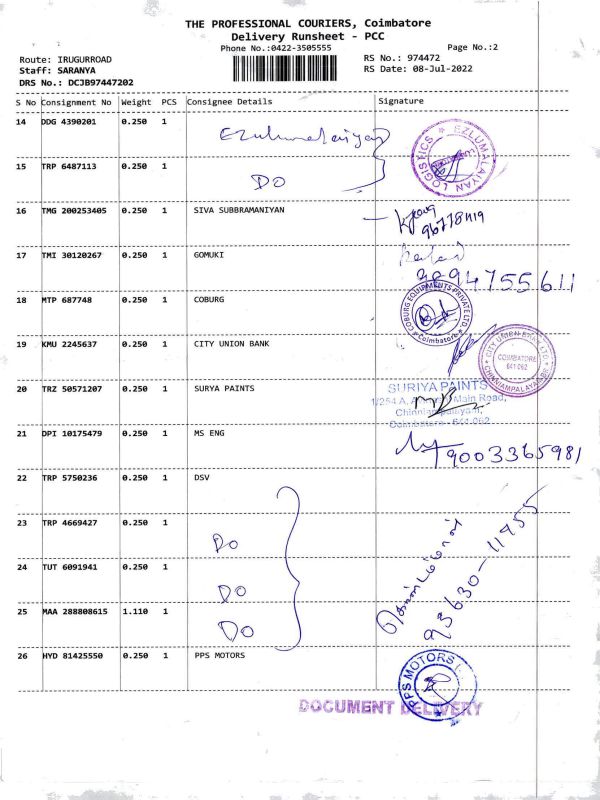 THE PROFESSIONAL COURIERS, Coimbatore
Delivery Runsheet - PCC
Phone No.:0422-3505555
Page No.:2
Route: IRUGURROAD
RS No.: 974472
Staff: SARANYA
RS Date: 08-Jul-2022
DRS No.: DCJB97447202
S No Consignment No Weight PCS Consignee Details Signature
14 DDG 4390201 0.250 1 Ezulumalaiyan
EZLUMALAIYAN LOGISTICS
15 TRP 6487113 0.250 1
DO
16 TMG 200253405 0.250 1 SIVA SUBBRAMANIYAN
17 TMI 30120267 0.250 1 GOMUKI
9094755611
18 MTP 687748 0.250 1 COBURG
COBURG EQUIPMENTS PRIVATE LTD. Coimbatore
19 KMU 2245637 0.250 1 CITY UNION BANK
CITY UNION BANK LTD. CHINNIAMPALAYAM BR.
COIMBATORE
641 062
20 TRZ 50571207 0.250 1 SURYA PAINTS
SURIYA PAINTS
1/254 A, Main Road,
Chinniampalayam,
Coimbatore - 641 062
21 DPI 10175479 0.250 1 MS ENG
9003365981
22 TRP 5750236 0.250 1 DSV
23 TRP 4669427 0.250 1
DO
24 TUT 6091941 0.250 1
DO
93630-11955
25 MAA 288808615 1.110 1
DO
26 HYD 81425550 0.250 1 PPS MOTORS
PPS MOTORS
DOCUMENT DELIVERY